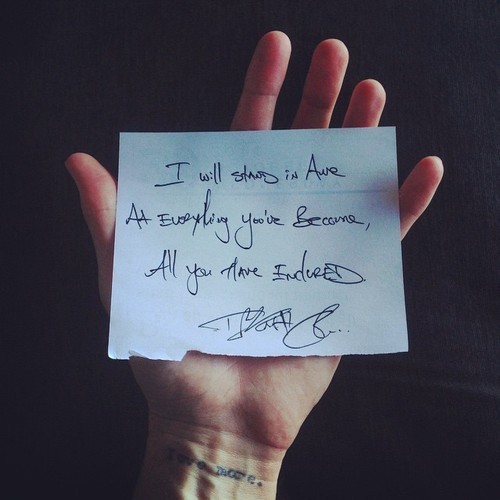 I will stand in Awe
At Everything you've Become,
All you Have Endured.
love more.